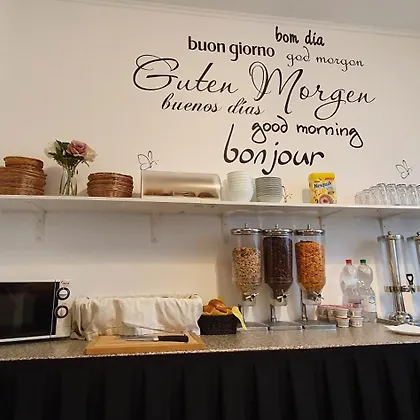 bom día
buon giorno
god morgon
Guten Morgen
buenos días
good morning
bonjour
Nesquik